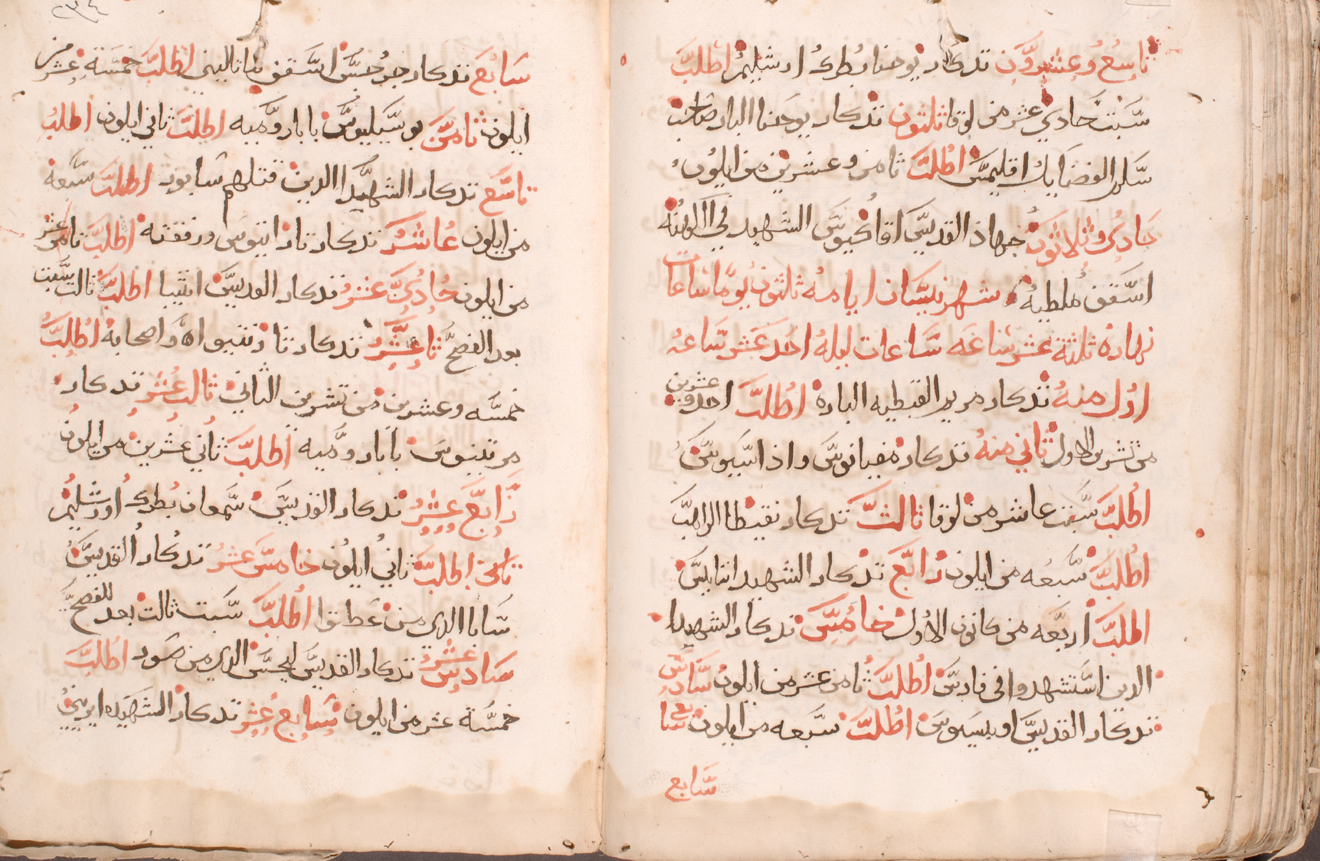 تاسع وعشرون تدكار يوحنا بطرك ارشليم اطلب
سبت حادي عشر من لوقا ثلثون تدكار يوحنا البار صاحب
سلم الفضايل اطلب ثامن وعشرين من ايلون
حادي وثلاثون جهاد القديس اقاكيوس الشهيد في الكهنه
اسقف ملطيه شهر نيسان ايامه ثلثون يوما ساعات
نهاره ثلثة عشر ساعه ساعات ليله احد عشر ساعه
اول منه تدكار مريم القبطيه الباره اطلب احد وعشرين
من تشرين الاول ثاني منه تدكار مفيانوس واداسيوس
اطلب سبت عاشر من لوقا ثالث تدكار نقيطا الراهب
اطلب سبعه من ايلون رابع تدكار الشهيد
اطلب اربعه من كانون الاول خامس تدكار الشهيدا
الدين استشهدوا في فارس اطلب ثامن عشر من ايلون سادس
تدكار القديس اوتيسيوس اطلب سبعه من ايلون سابع
سابع
سابع تدكار جرجس اسقف اطلب خمسة عشر من
ايلون ثامن بابا روميه اطلب ثاني ايلون اطلب
تاسع تدكار الشهيدا الدين قتلهم سابور اطلب سبعة
من ايلون عاشر تدكار ورفقته اطلب ثامن عشر
من ايلون حادي عشر تدكار القديس انتيبا اطلب ثالث سبت
بعد الفصح ثاني عشر تدكار واصحابه اطلب
خمسه وعشرين من تشرين الثاني ثالث عشر تدكار
مرتينوس بابا روميه اطلب ثاني عشرين من ايلون
رابع عشر تدكار القديس سمعان بطرك اورشليم
اطلب ثاني ايلون خامس عشر تدكار القديس
سابا الدي من اطلب سبت ثالت بعد الفصح
سادس عشر تدكار القديس الدي من صور اطلب
خمسة عشر من ايلون سابع عشر تدكار الشهيده ايريني